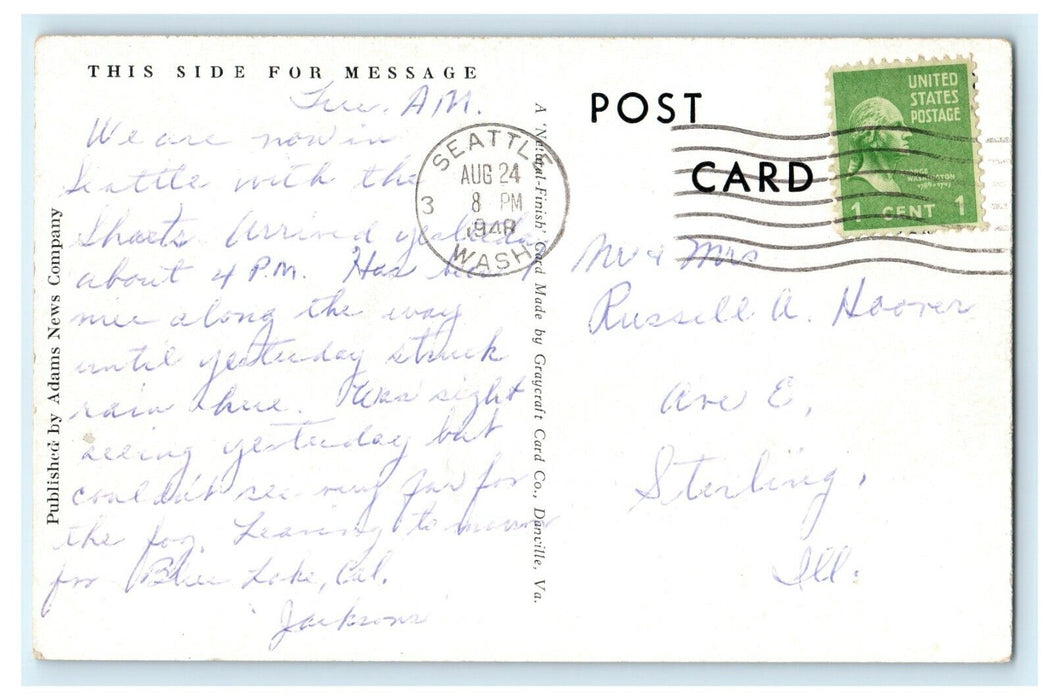 THIS SIDE FOR MESSAGE
Tue. A.M.
We are now in
Seattle with the
Shorts. Arrived yesterday
about 4 P.M. Has been
nice along the way
until yesterday struck
rain here. Was sight
seeing yesterday but
couldn't see very far for
the fog. Leaving to morrow
for Blue Lake, Cal.
Jacksons
Published by Adams News Company
A 'Natural-Finish' Card Made by Graycraft Card Co., Danville, Va.
SEATTLE
AUG 24
8 PM
1948
3
WASH.
POST
CARD
UNITED
STATES
POSTAGE
WASHINGTON
1 CENT 1
Mr & Mrs
Russell A. Hoover
Ave E,
Sterling,
Ill.